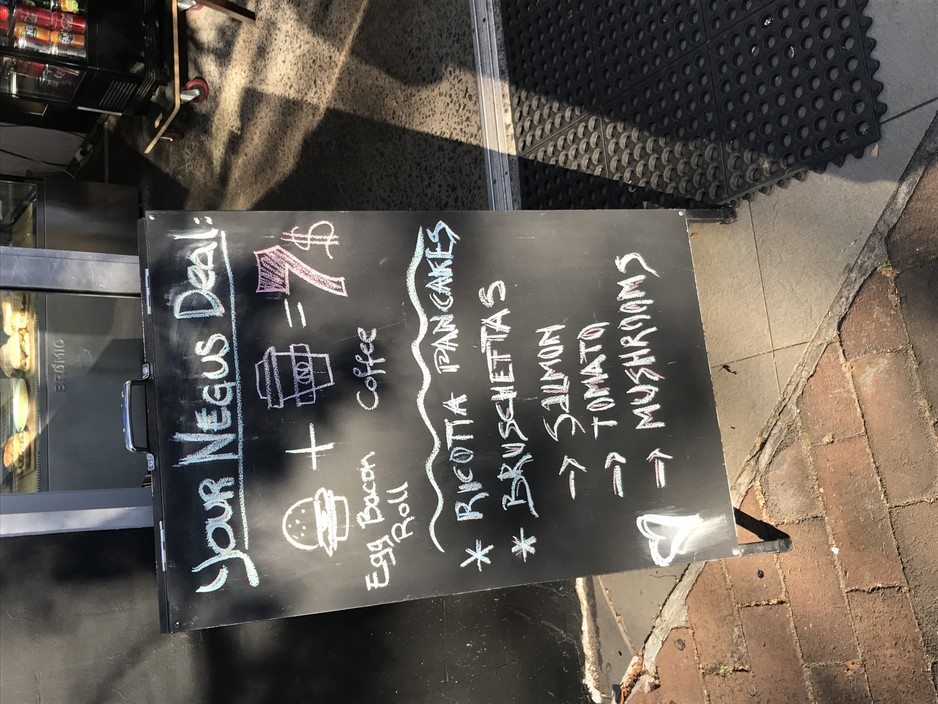 Your Negus Deal:
+ = 7$
Egg Bacon Roll
Coffee
* RICOTTA PANCAKES
* BRUSCHETTAS
→ SALMON
→ TOMATO
→ MUSHROOMS